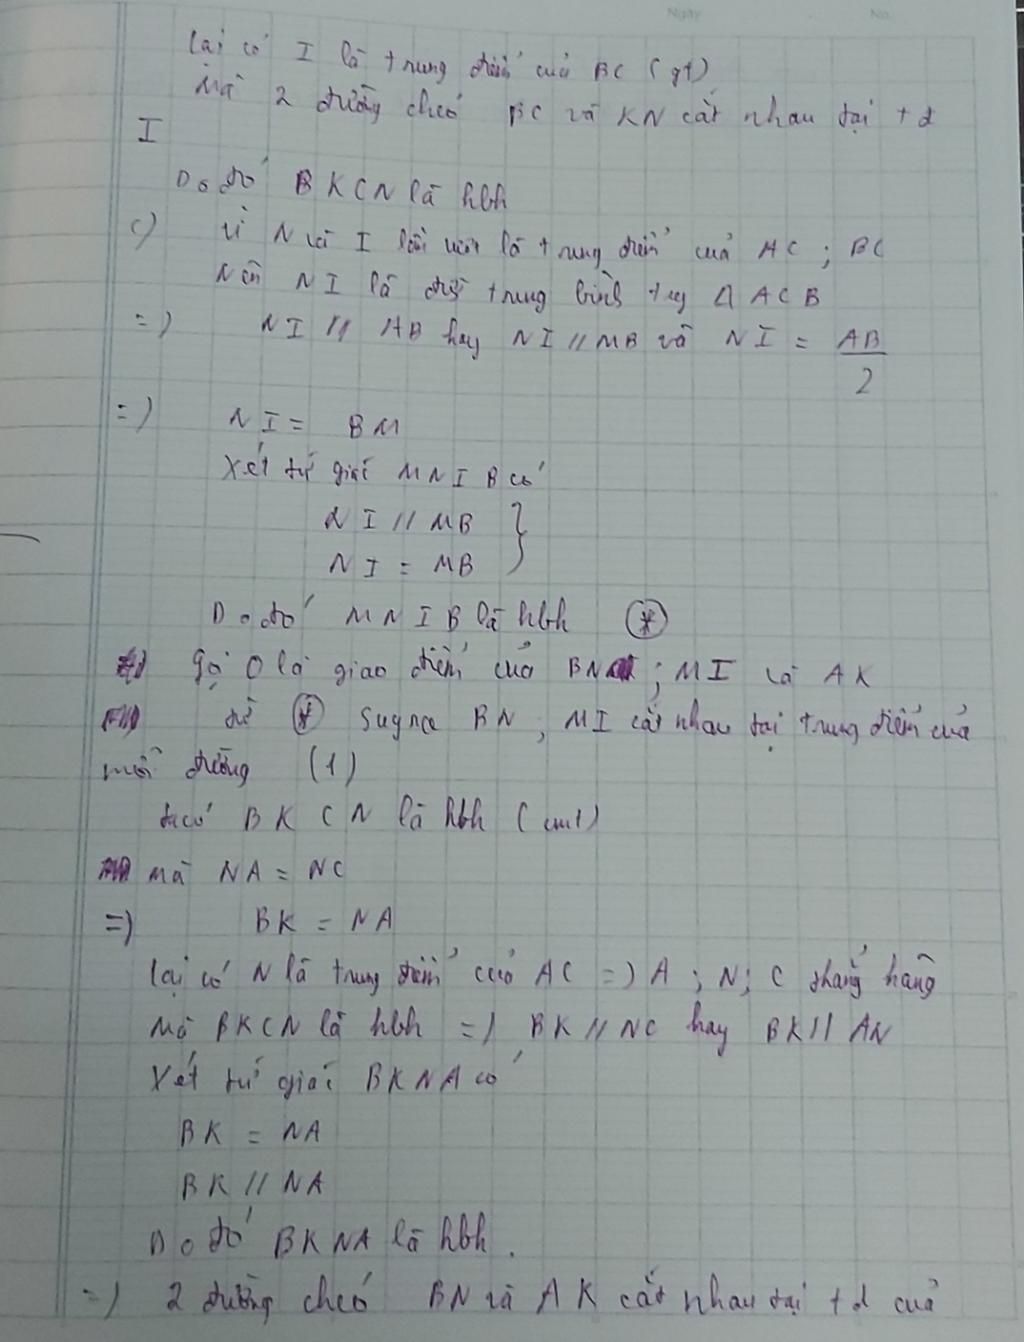 Ngày No.
Lại có I là trung điểm của BC (gt)
Mà 2 đường chéo BC và KN cắt nhau tại tđ
I
Do đó BKCN là hbh
c) Vì N và I lần lượt là trung điểm của AC ; BC
Nên NI là đg trung bình Δ ACB
=) NI // AB hay NI // MB và NI = AB/2
=) NI = BM
Xét tứ giác MNIB có
NI // MB }
NI = MB
Do đó MNIB là hbh (*)
Gọi O là giao điểm của BN ; MI và AK
từ (*) suy ra BN ; MI cắt nhau tại trung điểm của
mỗi đường (1)
ta có BKCN là hbh (cmt)
mà NA = NC
=) BK = NA
Lại có N là trung điểm của AC =) A ; N ; C thẳng hàng
Mà BKCN là hbh =) BK // NC hay BK // AN
Xét tứ giác BKNA có
BK = NA
BK // NA
Do đó BKNA là hbh.
=) 2 đường chéo BN và AK cắt nhau tại tđ của